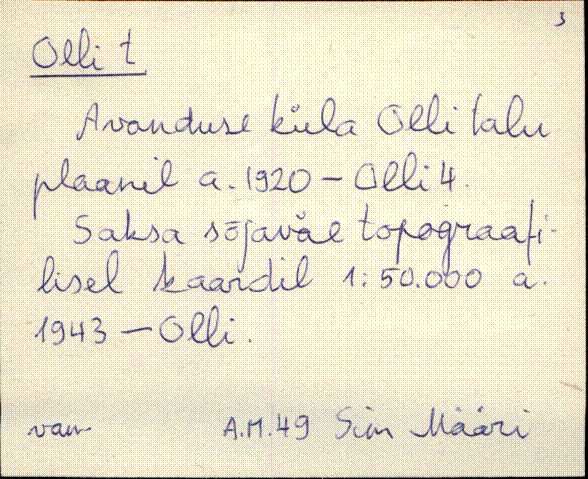 3
Olli t
Avanduse küla Olli talu
plaanil a. 1920 – Olli 4.
Saksa sõjaväe topograafi-
lisel kaardil 1:50.000 a.
1943 – Olli.
A.M. 49 Sim Määri